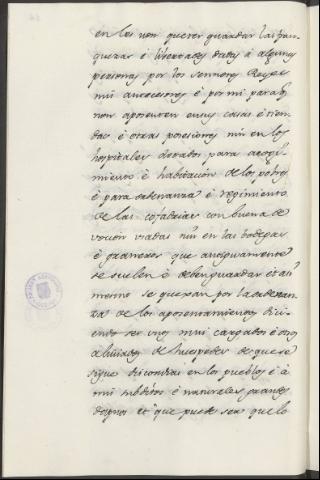 en los non querer guardar las fran
quezas é libertades dadas á algunas
personas por los sennores Reyes
mis antecesores é por mi para q.
non aposenten en sus casas é tien
das é otras posesiones nin en los
hospitales dotados para acogi
miento é habitacion de los pobres
é para ordenanza é regimiento
de las cofadrias con buena de
vocion usadas nin en las bodegas
é graneros que antiguamente
se suelen é deben guardar et asi
mesmo se quexan por la ordenan
za de los aposentamientos dici
endo ser unos mui cargados é otros
aliviados de huespedes de que se
sigue discordias en los pueblos é á
mis subditos é naturales grandes
dapnos et que puede ser que lo